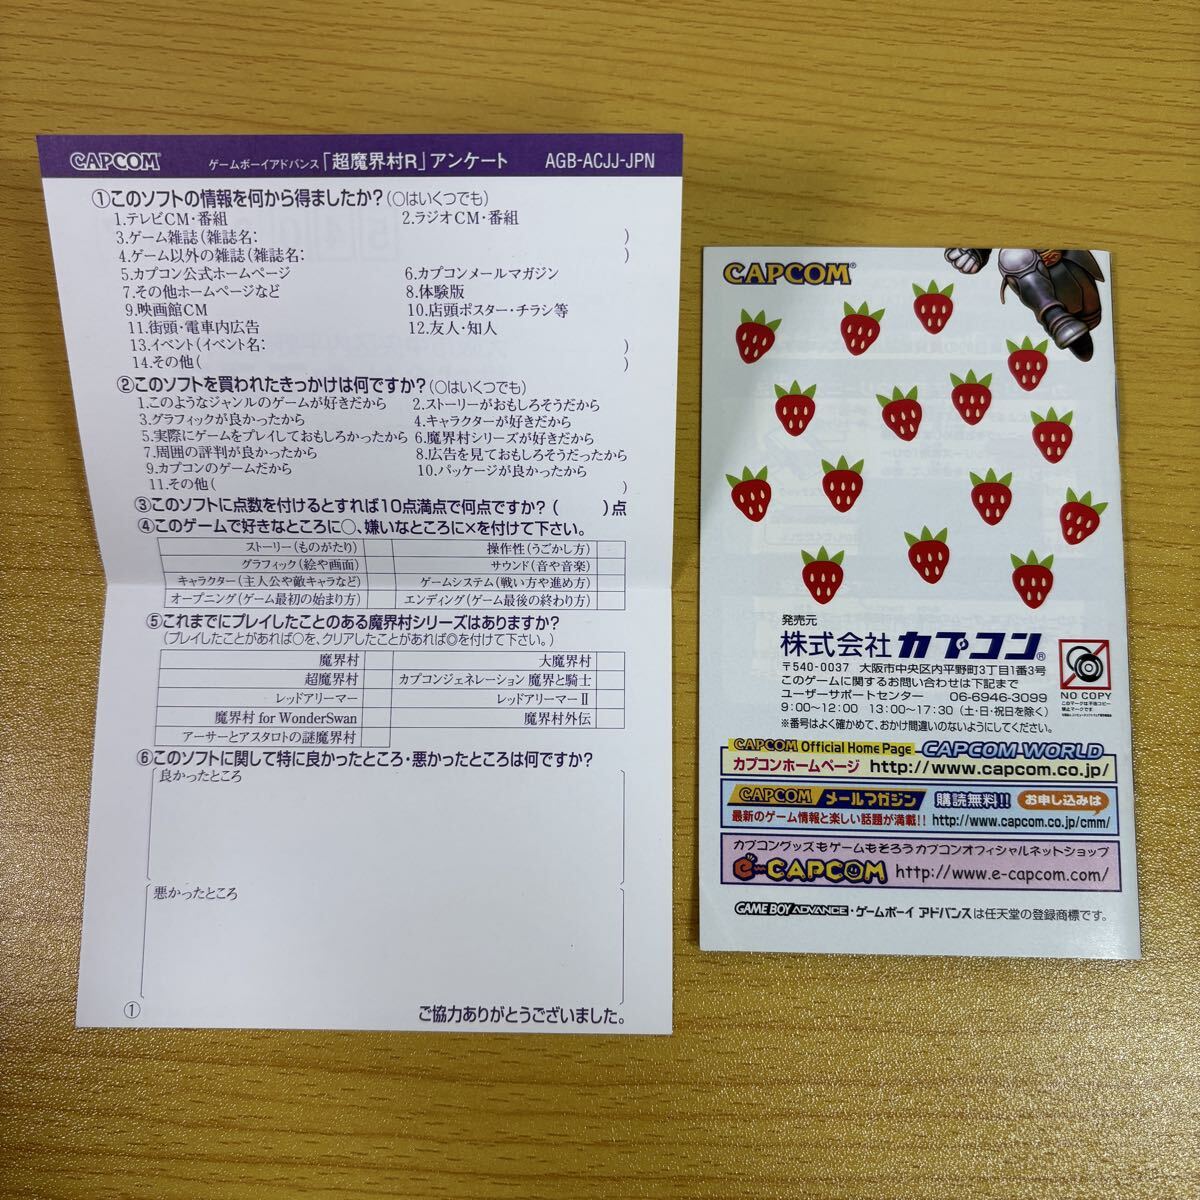 CAPCOM ゲームボーイアドバンス「超魔界村R」アンケート AGB-ACJJ-JPN
①このソフトの情報を何から得ましたか?(○はいくつでも)
1.テレビCM・番組 2.ラジオCM・番組
3.ゲーム雑誌(雑誌名: )
4.ゲーム以外の雑誌(雑誌名: )
5.カプコン公式ホームページ 6.カプコンメールマガジン
7.その他ホームページなど 8.体験版
9.映画館CM 10.店頭ポスター・チラシ等
11.街頭・電車内広告 12.友人・知人
13.イベント(イベント名: )
14.その他( )
②このソフトを買われたきっかけは何ですか?(○はいくつでも)
1.このようなジャンルのゲームが好きだから 2.ストーリーがおもしろそうだから
3.グラフィックが良かったから 4.キャラクターが好きだから
5.実際にゲームをプレイしておもしろかったから 6.魔界村シリーズが好きだから
7.周囲の評判が良かったから 8.広告を見ておもしろそうだったから
9.カプコンのゲームだから 10.パッケージが良かったから
11.その他( )
③このソフトに点数を付けるとすれば10点満点で何点ですか?( )点
④このゲームで好きなところに○、嫌いなところに×を付けて下さい。
ストーリー(ものがたり) 操作性(うごかし方)
グラフィック(絵や画面) サウンド(音や音楽)
キャラクター(主人公や敵キャラなど) ゲームシステム(戦い方や進め方)
オープニング(ゲーム最初の始まり方) エンディング(ゲーム最後の終わり方)
⑤これまでにプレイしたことのある魔界村シリーズはありますか?
(プレイしたことがあれば○を、クリアしたことがあれば◎を付けて下さい。)
魔界村 大魔界村
超魔界村 カプコンジェネレーション 魔界と騎士
レッドアリーマー レッドアリーマーⅡ
魔界村 for WonderSwan 魔界村外伝
アーサーとアスタロトの謎魔界村
⑥このソフトに関して特に良かったところ・悪かったところは何ですか?
良かったところ
悪かったところ
① ご協力ありがとうございました。
CAPCOM®
発売元
株式会社 カプコン®
〒540-0037 大阪市中央区内平野町3丁目1番3号
このゲームに関するお問い合わせは下記まで
ユーザーサポートセンター 06-6946-3099
9:00～12:00 13:00～17:30(土・日・祝日を除く)
※番号はよく確かめて、おかけ間違いのないようにしてください。
NO COPY
CAPCOM Official Home Page CAPCOM WORLD
カプコンホームページ http://www.capcom.co.jp/
CAPCOM メールマガジン 購読無料!! お申し込みは
最新のゲーム情報と楽しい話題が満載!! http://www.capcom.co.jp/cmm/
カプコングッズもゲームもそろうカプコンオフィシャルネットショップ
e-CAPCOM http://www.e-capcom.com/
GAME BOY ADVANCE・ゲームボーイ アドバンスは任天堂の登録商標です。